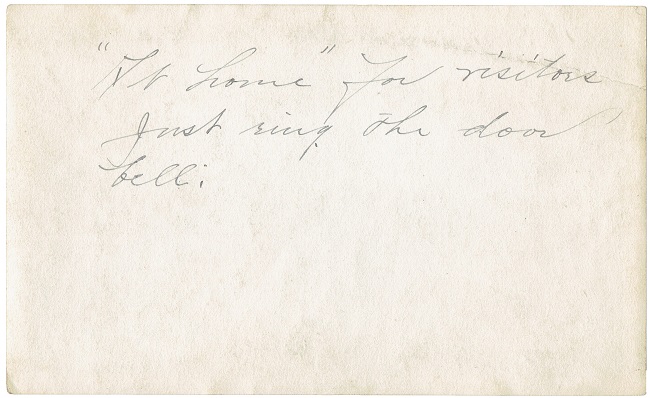 "At home" for visitors
Just ring the door
bell.